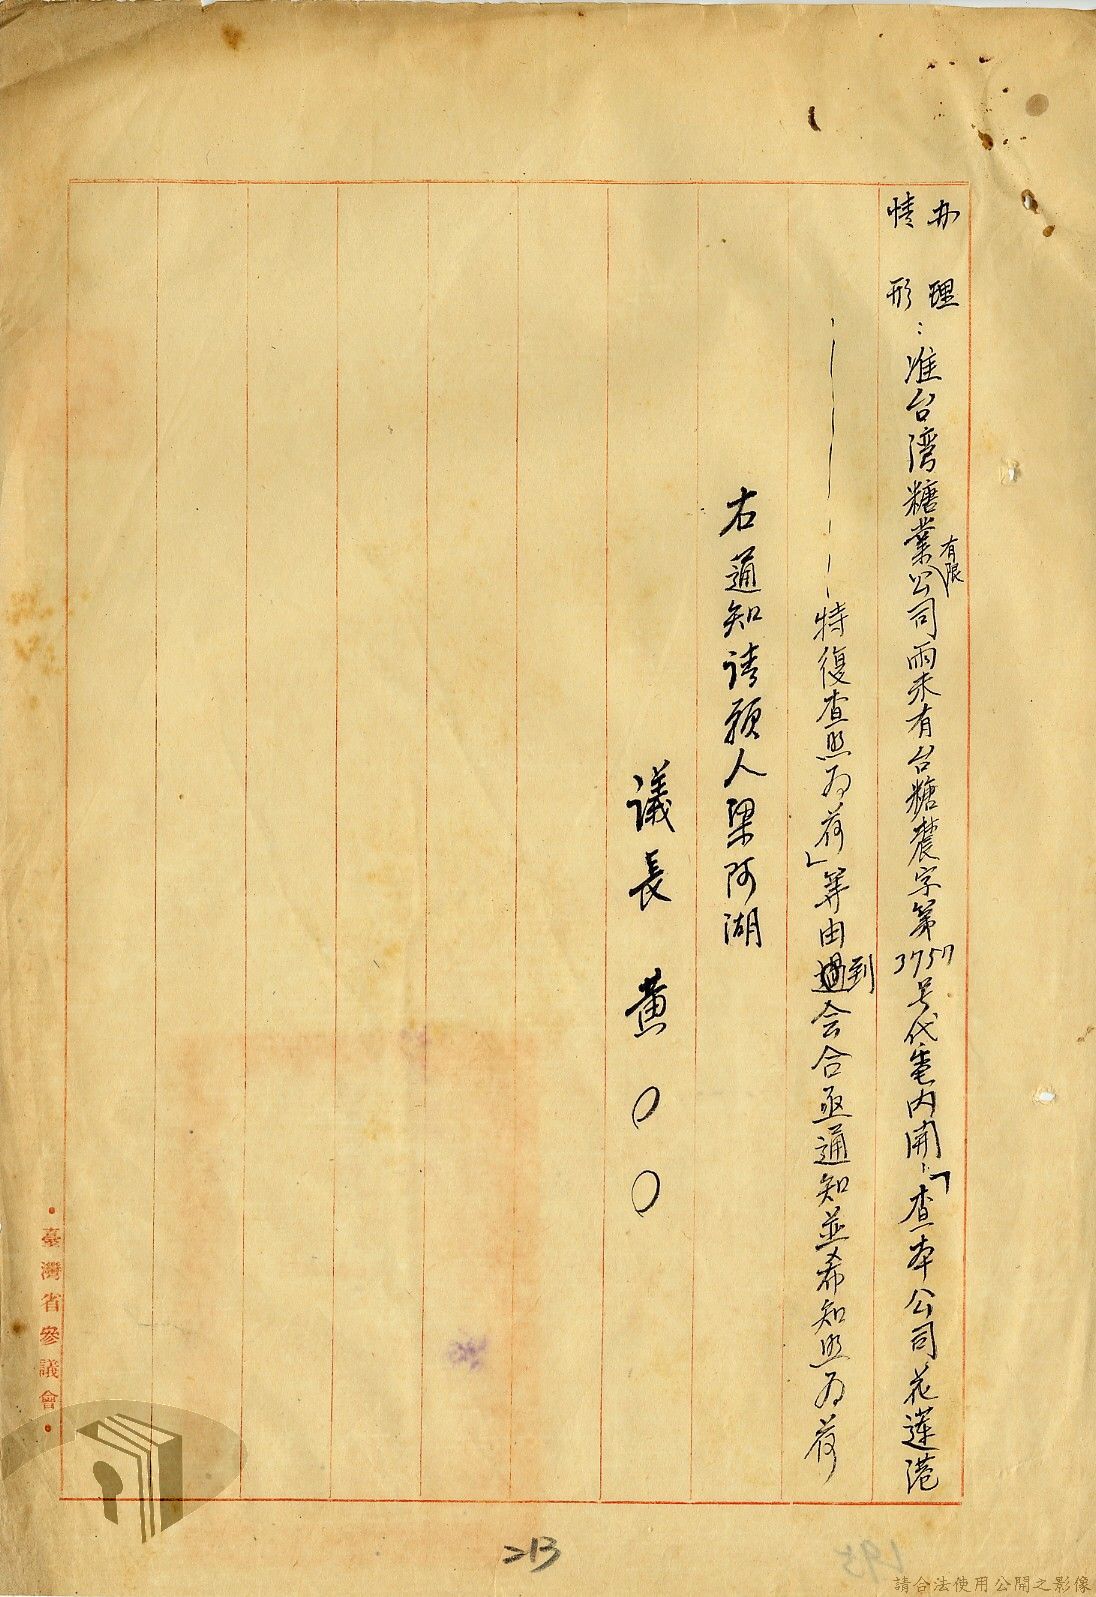 办理
情形：准台湾糖業有限公司雨未有台糖農字第3757号代電内開：「查本公司花蓮港
————特復查照为荷」等由到会合亟通知並希知照为荷
右通知请願人梁阿湖
議長 黄〇〇
·臺灣省參議會·
213
195
請合法使用公開之影像